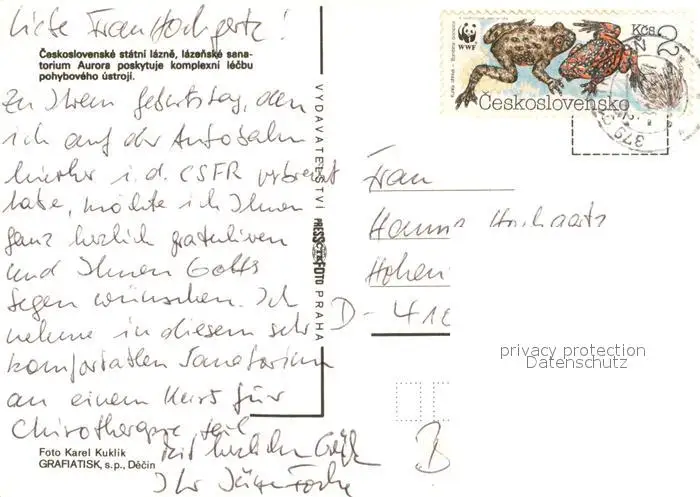 Liebe Frau Hochgartz!
Československé státní lázně, lázeňské sana-
torium Aurora poskytuje komplexní léčbu
pohybového ústrojí.
Zu Ihrem Geburtstag, den
ich auf der Autobahn
hierher i. d. CSFR verbracht
habe, möchte ich Ihnen
ganz herzlich gratulieren
und Ihnen Gottes
Segen wünschen. Ich
nehme in diesem sehr
komfortablen Sanatorium
an einem Kurs für
Chirotherapie teil
Mit herzlichen Grüßen
Ihr
Foto Karel Kuklík
GRAFIATISK, s.p., Děčín
VYDAVATELSTVÍ PRESSFOTO PRAHA
WWF
Kčs 2
Československo
Frau
Hanna
Hohen
D-
privacy protection
Datenschutz